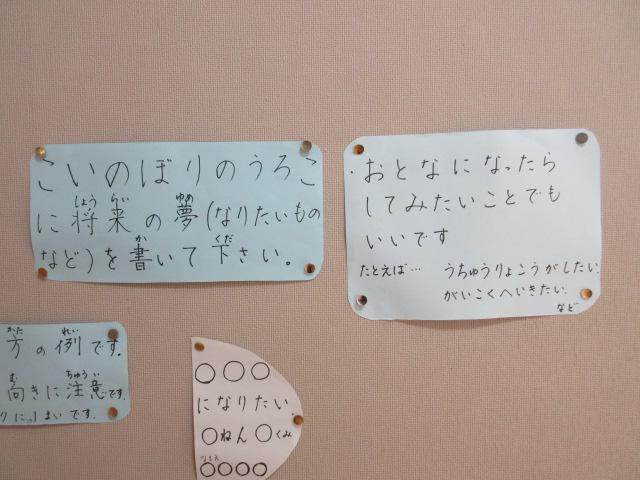 こいのぼりのうろこ
に将来の夢(なりたいもの
など)を書いて下さい。
・おとなになったら
してみたいことでも
いいです
たとえば… うちゅうりょこうがしたい.
がいこくへいきたい.
など
方の例です.
向きに注意です.
まいです.
○○○
になりたい.
○ねん○くみ
なまえ
○○○○